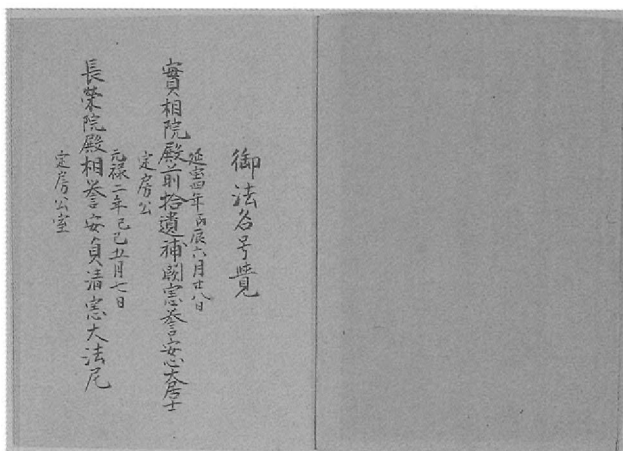 御法名号覺
延宝四年丙辰六月廿八日
實相院殿前拾遺補闕憲誉安心大居士
定房公
元禄二年己巳五月七日
長榮院殿相誉安貞清憲大法尼
定房公室